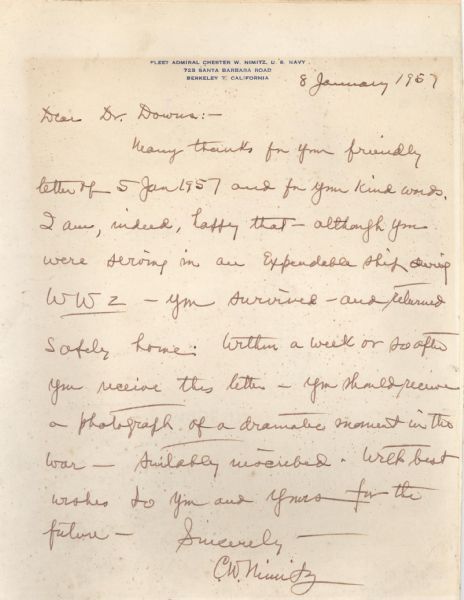 FLEET ADMIRAL CHESTER W. NIMITZ, U. S. NAVY
728 SANTA BARBARA ROAD
BERKELEY 7, CALIFORNIA
8 January 1957
Dear Dr. Downs:-
Many thanks for your friendly
letter of 5 Jan 1957 and for your kind words.
I am, indeed, happy that - although you
were serving in an Expendable ship during
WW2 - you survived - and returned
safely home. Within a week or so after
you receive this letter - you should receive
a photograph of a dramatic moment in the
war - suitably inscribed. With best
wishes to you and yours for the
future -
Sincerely -
C.W. Nimitz